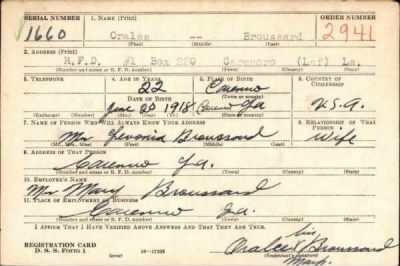 SERIAL NUMBER 1. NAME (Print) ORDER NUMBER
1660 Oralee -- Broussard 2941
(First) (Middle) (Last)
2. ADDRESS (Print)
R.F.D. #1 Box 220 Carencro (Laf) La.
(Number and street or R. F. D. number) (Town) (County) (State)
3. TELEPHONE 4. AGE IN YEARS 5. PLACE OF BIRTH 6. COUNTRY OF CITIZENSHIP
22 Carencro
DATE OF BIRTH (Town or county)
June 20 1918 La U.S.A.
(Exchange) (Number) (Mo.) (Day) (Yr.) (State or country)
7. NAME OF PERSON WHO WILL ALWAYS KNOW YOUR ADDRESS 8. RELATIONSHIP OF THAT PERSON
Mrs Levonia Broussard Wife
(Mr., Mrs., Miss) (First) (Middle) (Last)
9. ADDRESS OF THAT PERSON
Carencro La.
(Number and street or R. F. D. number) (Town) (County) (State)
10. EMPLOYER'S NAME
Mrs Mary Broussard
11. PLACE OF EMPLOYMENT OR BUSINESS
Carencro La.
(Number and street or R. F. D. number) (Town) (County) (State)
I AFFIRM THAT I HAVE VERIFIED ABOVE ANSWERS AND THAT THEY ARE TRUE.
his
REGISTRATION CARD Oralee X Broussard
D. S. S. Form 1 (Registrant's signature)
Mark